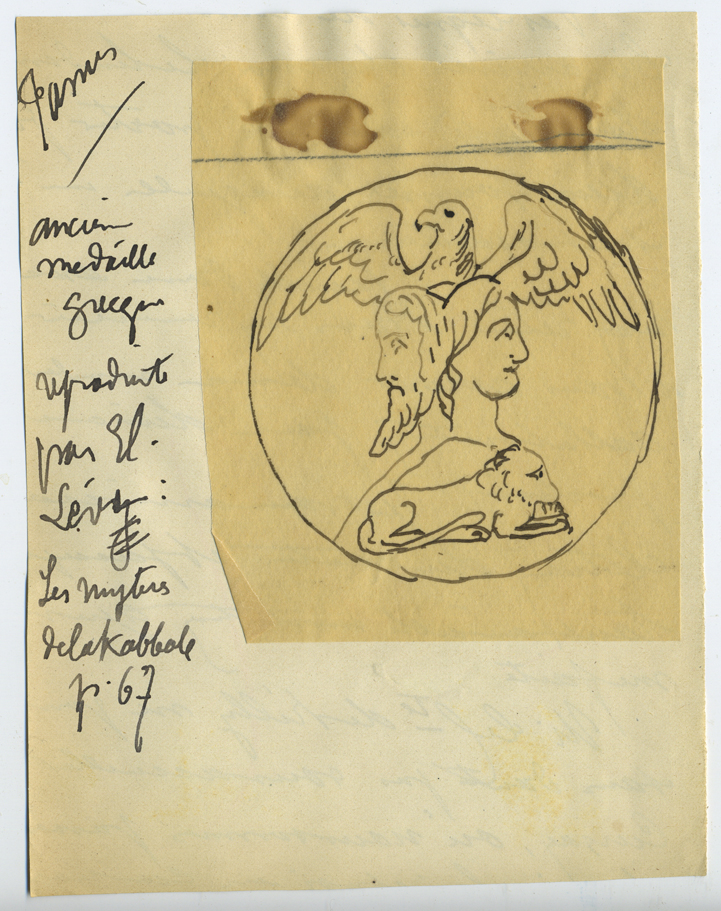 Janus
ancienne
médaille
grecque
reproduite
par El.
Lévy:
Les mystères
de la Kabbale
p. 67